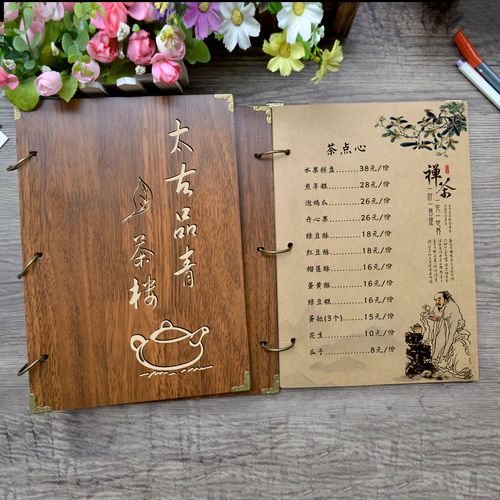 太古品青
茶楼
茶点心
水果拼盘……38元/份
煎年糕……28元/份
泡鸡爪……26元/份
开心果……26元/份
绿豆酥……18元/份
红豆酥……18元/份
榴莲酥……16元/份
蛋黄酥……16元/份
绿豆糕……16元/份
蛋挞(3个)……15元/份
花生……10元/份
瓜子……8元/份
禅茶
一花一世界